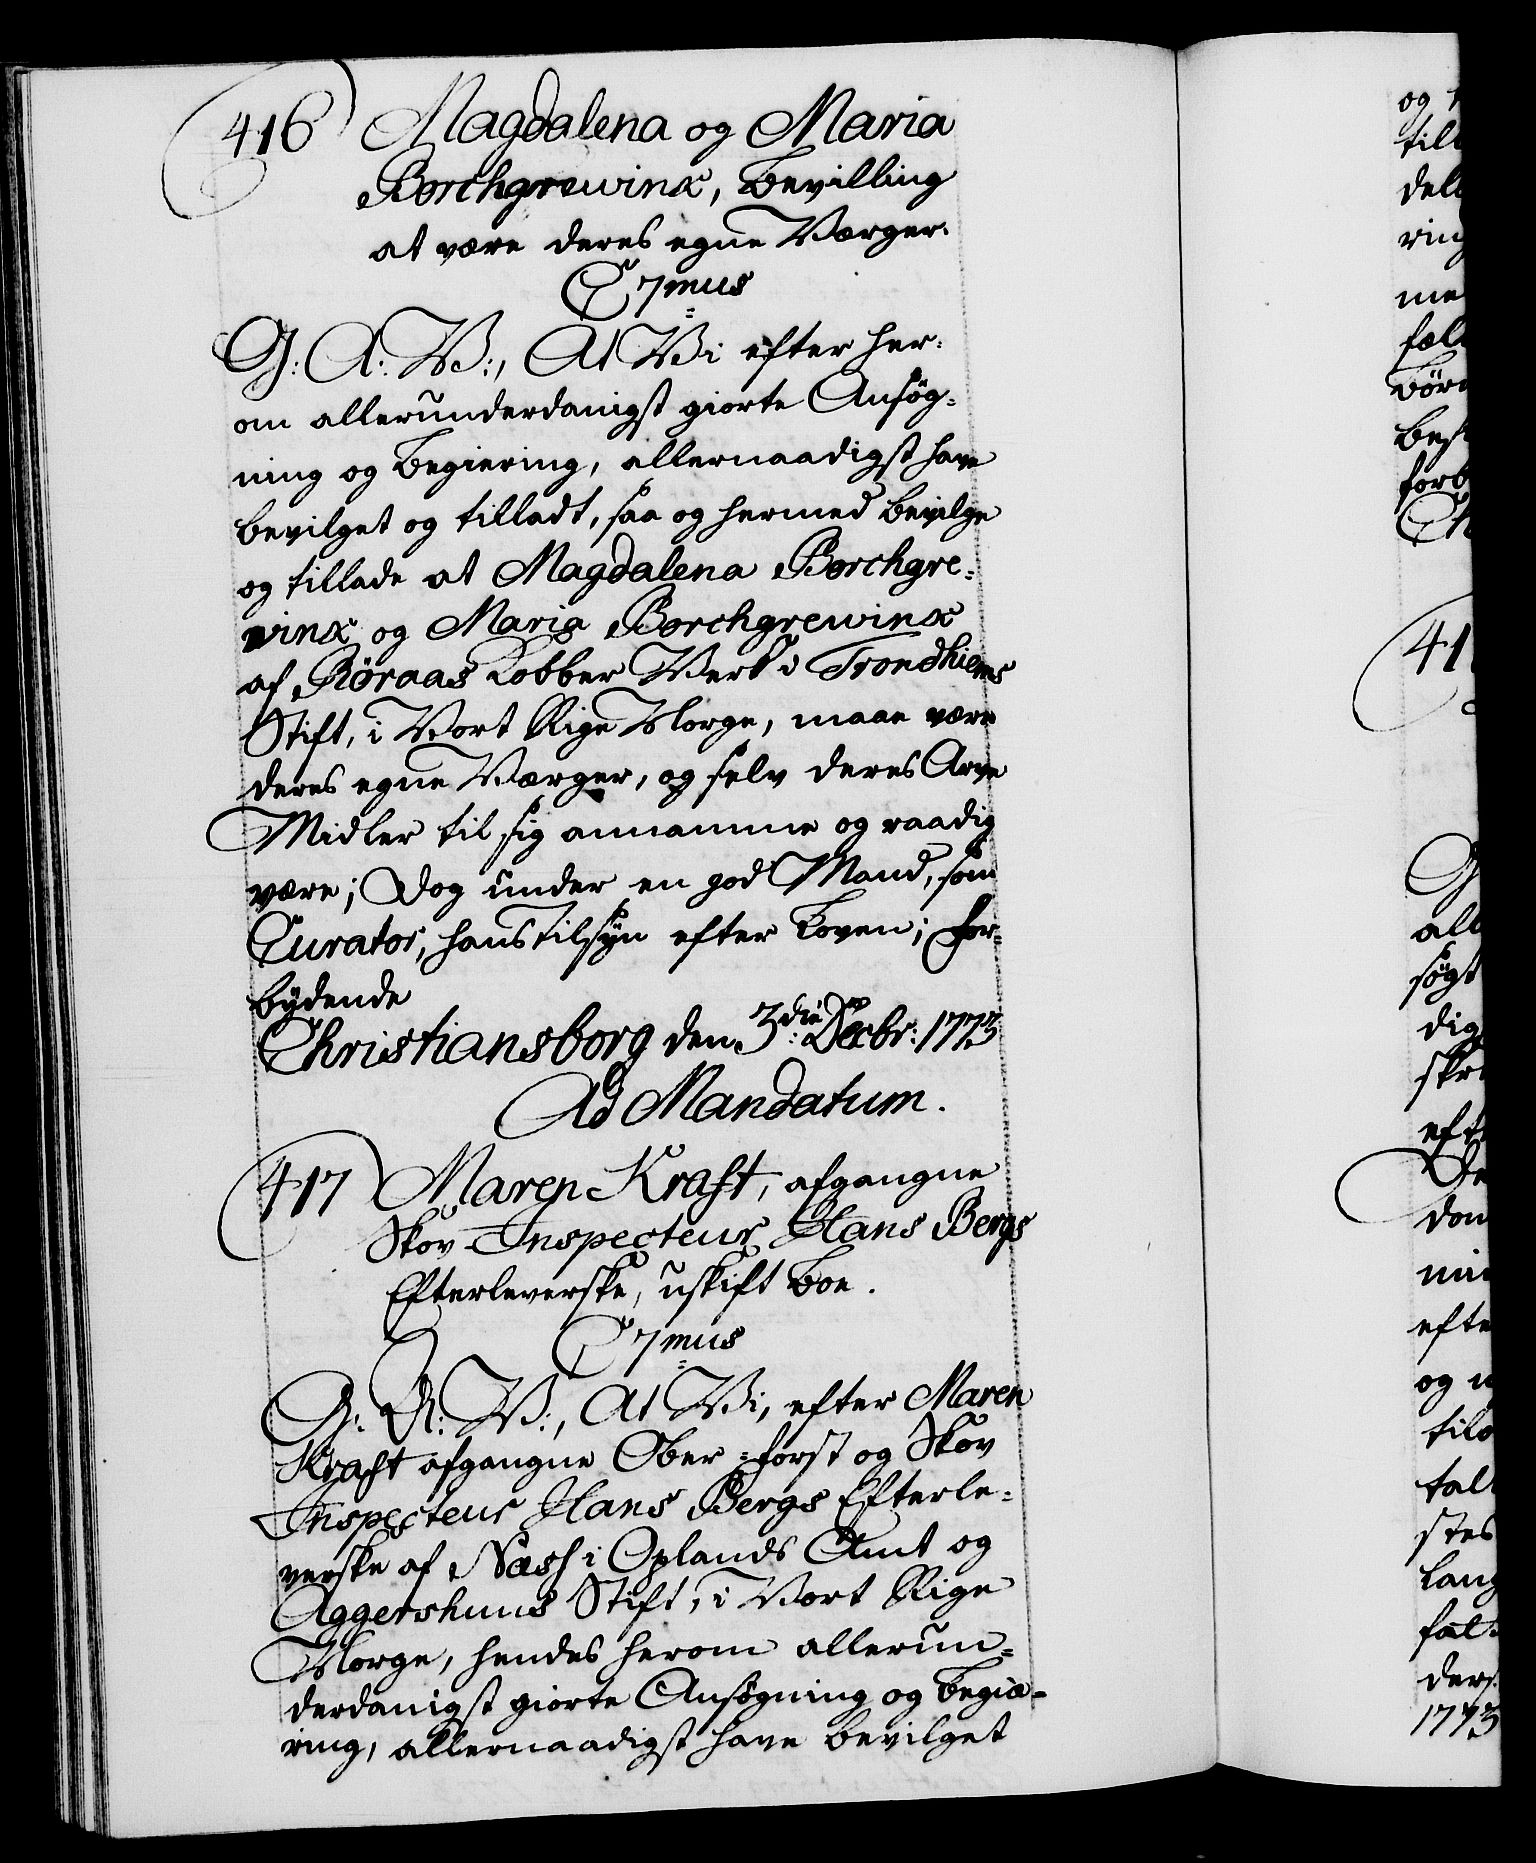 416 Magdalena og Maria
Borchgrewinx, Bevilling
at være deres egne Værger.
C 7mus
G: A: V:, At Vi efter her-
om allerunderdanigst giorte Ansøg-
ning og Begiering, allernaadigst have
bevilget og tilladt, saa og hermed bevilge
og tillade at Magdalena Borchgre-
winx og Maria Borchgrewinx
af Röraas Kobber Verk i Trondhiems
Stift, i Vort Rige Norge, maae være
deres egne Værger, og selv deres Arve
Midler til sig annamme og raadig
være; Dog under en god Mand, som
Curator, hans Tilsyn efter Loven; For-
bydende
Christiansborg den 3die Decbr: 1773
Ad Mandatum.
417 Maren Kraft, afgangne
Skov-Inspecteur Hans Bergs
Efterleverske, uskift Boe.
C 7mus
G: A: V:, At Vi, efter Maren
Kraft afgangne Ober-Forst og Skov
Inspecteur Hans Bergs Efterle-
verske af Næss i Oplands Amt og
Aggershuus Stift, i Vort Rige
Norge, hendes herom allerun-
derdanigst giorte Ansøgning og Begiæ-
ring, allernaadigst have bevilget